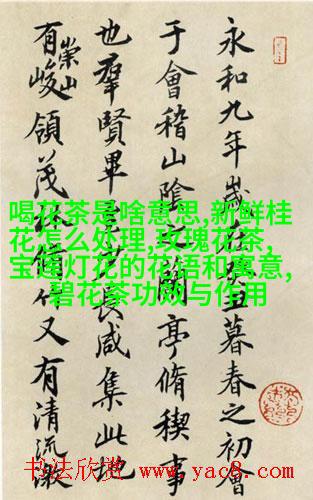 永和九年歲在癸丑暮春之初會
于會稽山陰之蘭亭脩稧事
也羣賢畢至少長咸集此地
有崇山峻領茂林脩竹又有清流激
喝花茶是啥意思,新鲜桂
花怎么处理,玫瑰花茶,
宝莲灯花的花语和寓意,
碧花茶功效与作用
书法欣赏 www.yac8.com